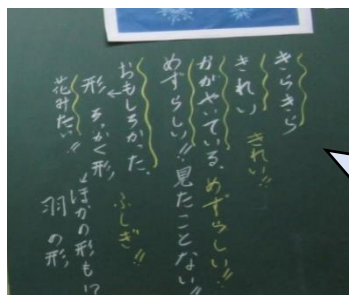 きらきら
きれい きれい!!
かがやいている。めずらしい!!
めずらしい!!見たことない!!
おもしろかった。ふしぎ!!
形 ろっかく形 ↓ほかの形も!?
花みたい!! 羽の形